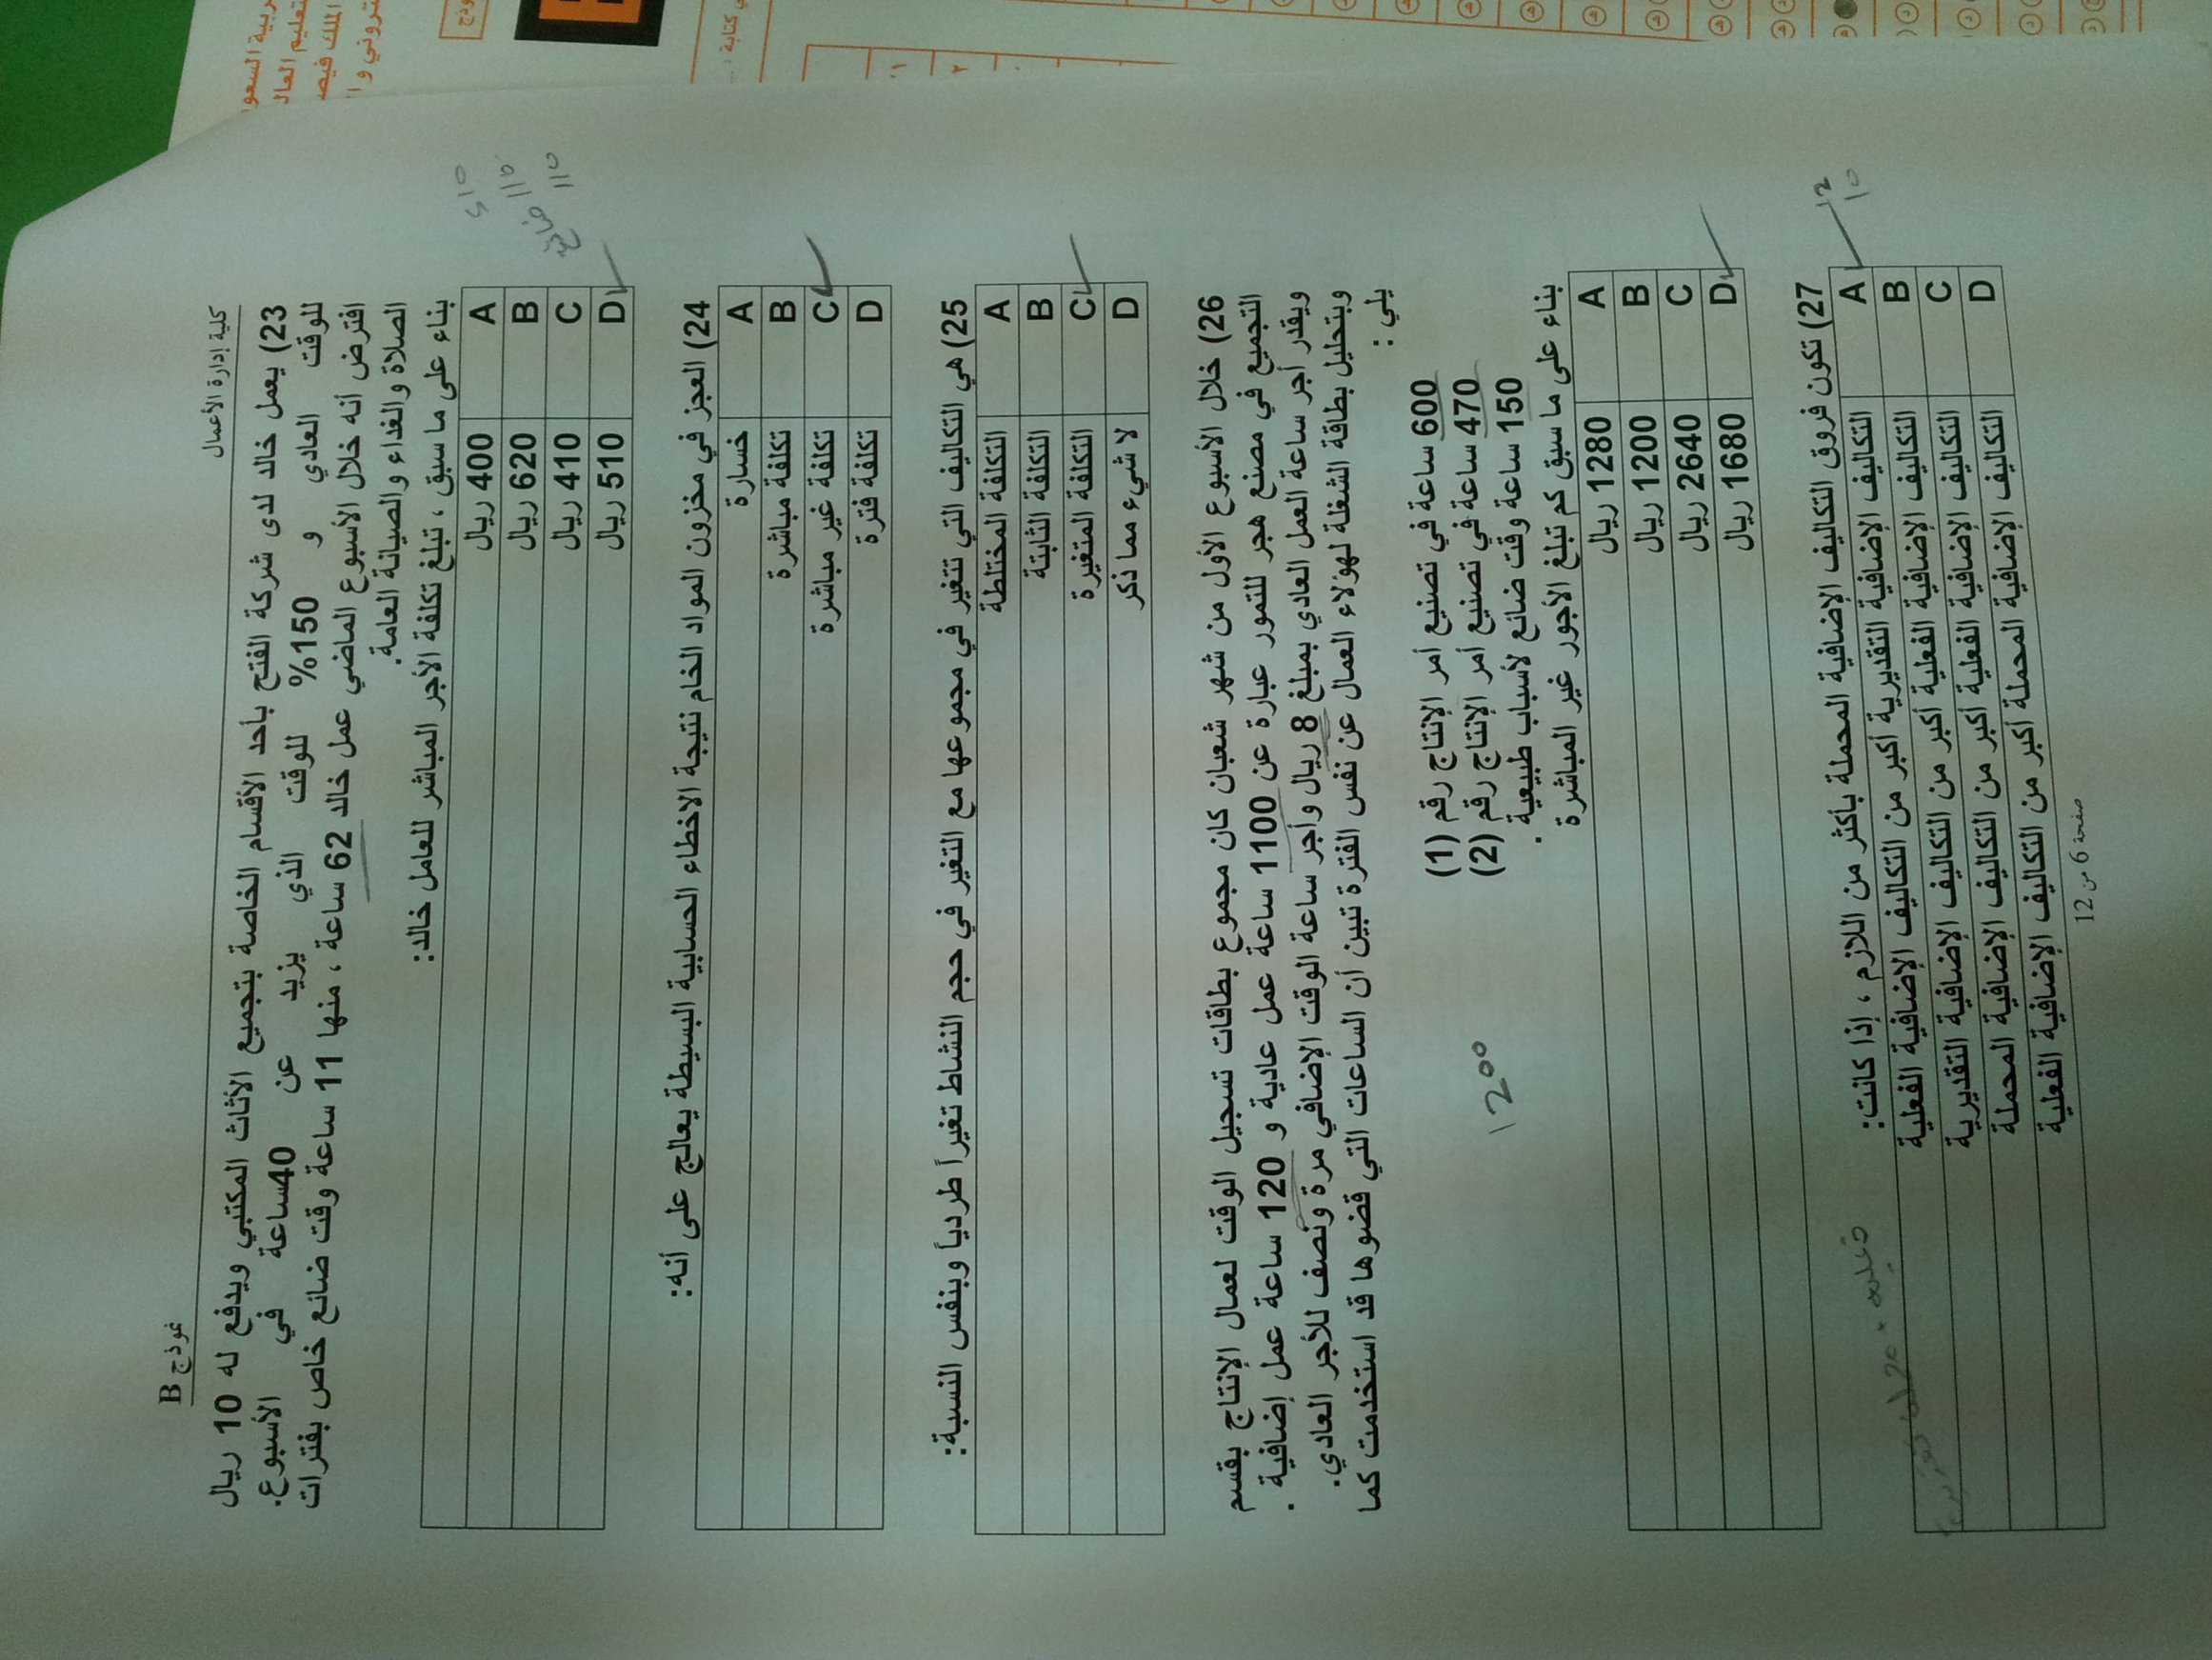 نموذج B
كلية إدارة الأعمال
23) يعمل خالد لدى شركة الفتح بأحد الأقسام الخاصة بتجميع الأثاث المكتبي ويدفع له 10 ريال
للوقت العادي و 150% للوقت الذي يزيد عن 40ساعة في الأسبوع.
افترض أنه خلال الأسبوع الماضي عمل خالد 62 ساعة ، منها 11 ساعة وقت ضائع خاص بفترات
الصلاة والغداء والصيانة العامة.
بناء على ما سبق ، تبلغ تكلفة الأجر المباشر للعامل خالد:
A 400 ريال
B 620 ريال
C 410 ريال
D 510 ريال
510
110 ضائع
110
24) العجز في مخزون المواد الخام نتيجة الاخطاء الحسابية البسيطة يعالج على أنه:
A خسارة
B تكلفة مباشرة
C تكلفة غير مباشرة
D تكلفة فترة
25) هي التكاليف التي تتغير في مجموعها مع التغير في حجم النشاط تغيراً طردياً وبنفس النسبة:
A التكلفة المختلطة
B التكلفة الثابتة
C التكلفة المتغيرة
D لا شيء مما ذكر
26) خلال الأسبوع الأول من شهر شعبان كان مجموع بطاقات تسجيل الوقت لعمال الإنتاج بقسم
التجميع في مصنع هجر للتمور عبارة عن 1100 ساعة عمل عادية و 120 ساعة عمل إضافية .
ويقدر أجر ساعة العمل العادي بمبلغ 8 ريال وأجر ساعة الوقت الإضافي مرة ونصف للأجر العادي.
وبتحليل بطاقة الشغلة لهؤلاء العمال عن نفس الفترة تبين أن الساعات التي قضوها قد استخدمت كما
يلي :
600 ساعة في تصنيع أمر الإنتاج رقم (1)
470 ساعة في تصنيع أمر الإنتاج رقم (2)
150 ساعة وقت ضائع لأسباب طبيعية .
1200
بناء على ما سبق كم تبلغ الأجور غير المباشرة
A 1280 ريال
B 1200 ريال
C 2640 ريال
D 1680 ريال
27) تكون فروق التكاليف الإضافية المحملة بأكثر من اللازم ، إذا كانت:
A التكاليف الإضافية التقديرية أكبر من التكاليف الإضافية الفعلية
B التكاليف الإضافية الفعلية أكبر من التكاليف الإضافية التقديرية
C التكاليف الإضافية الفعلية أكبر من التكاليف الإضافية المحملة
D التكاليف الإضافية المحملة أكبر من التكاليف الإضافية الفعلية
12
10
صفحة 6 من 12